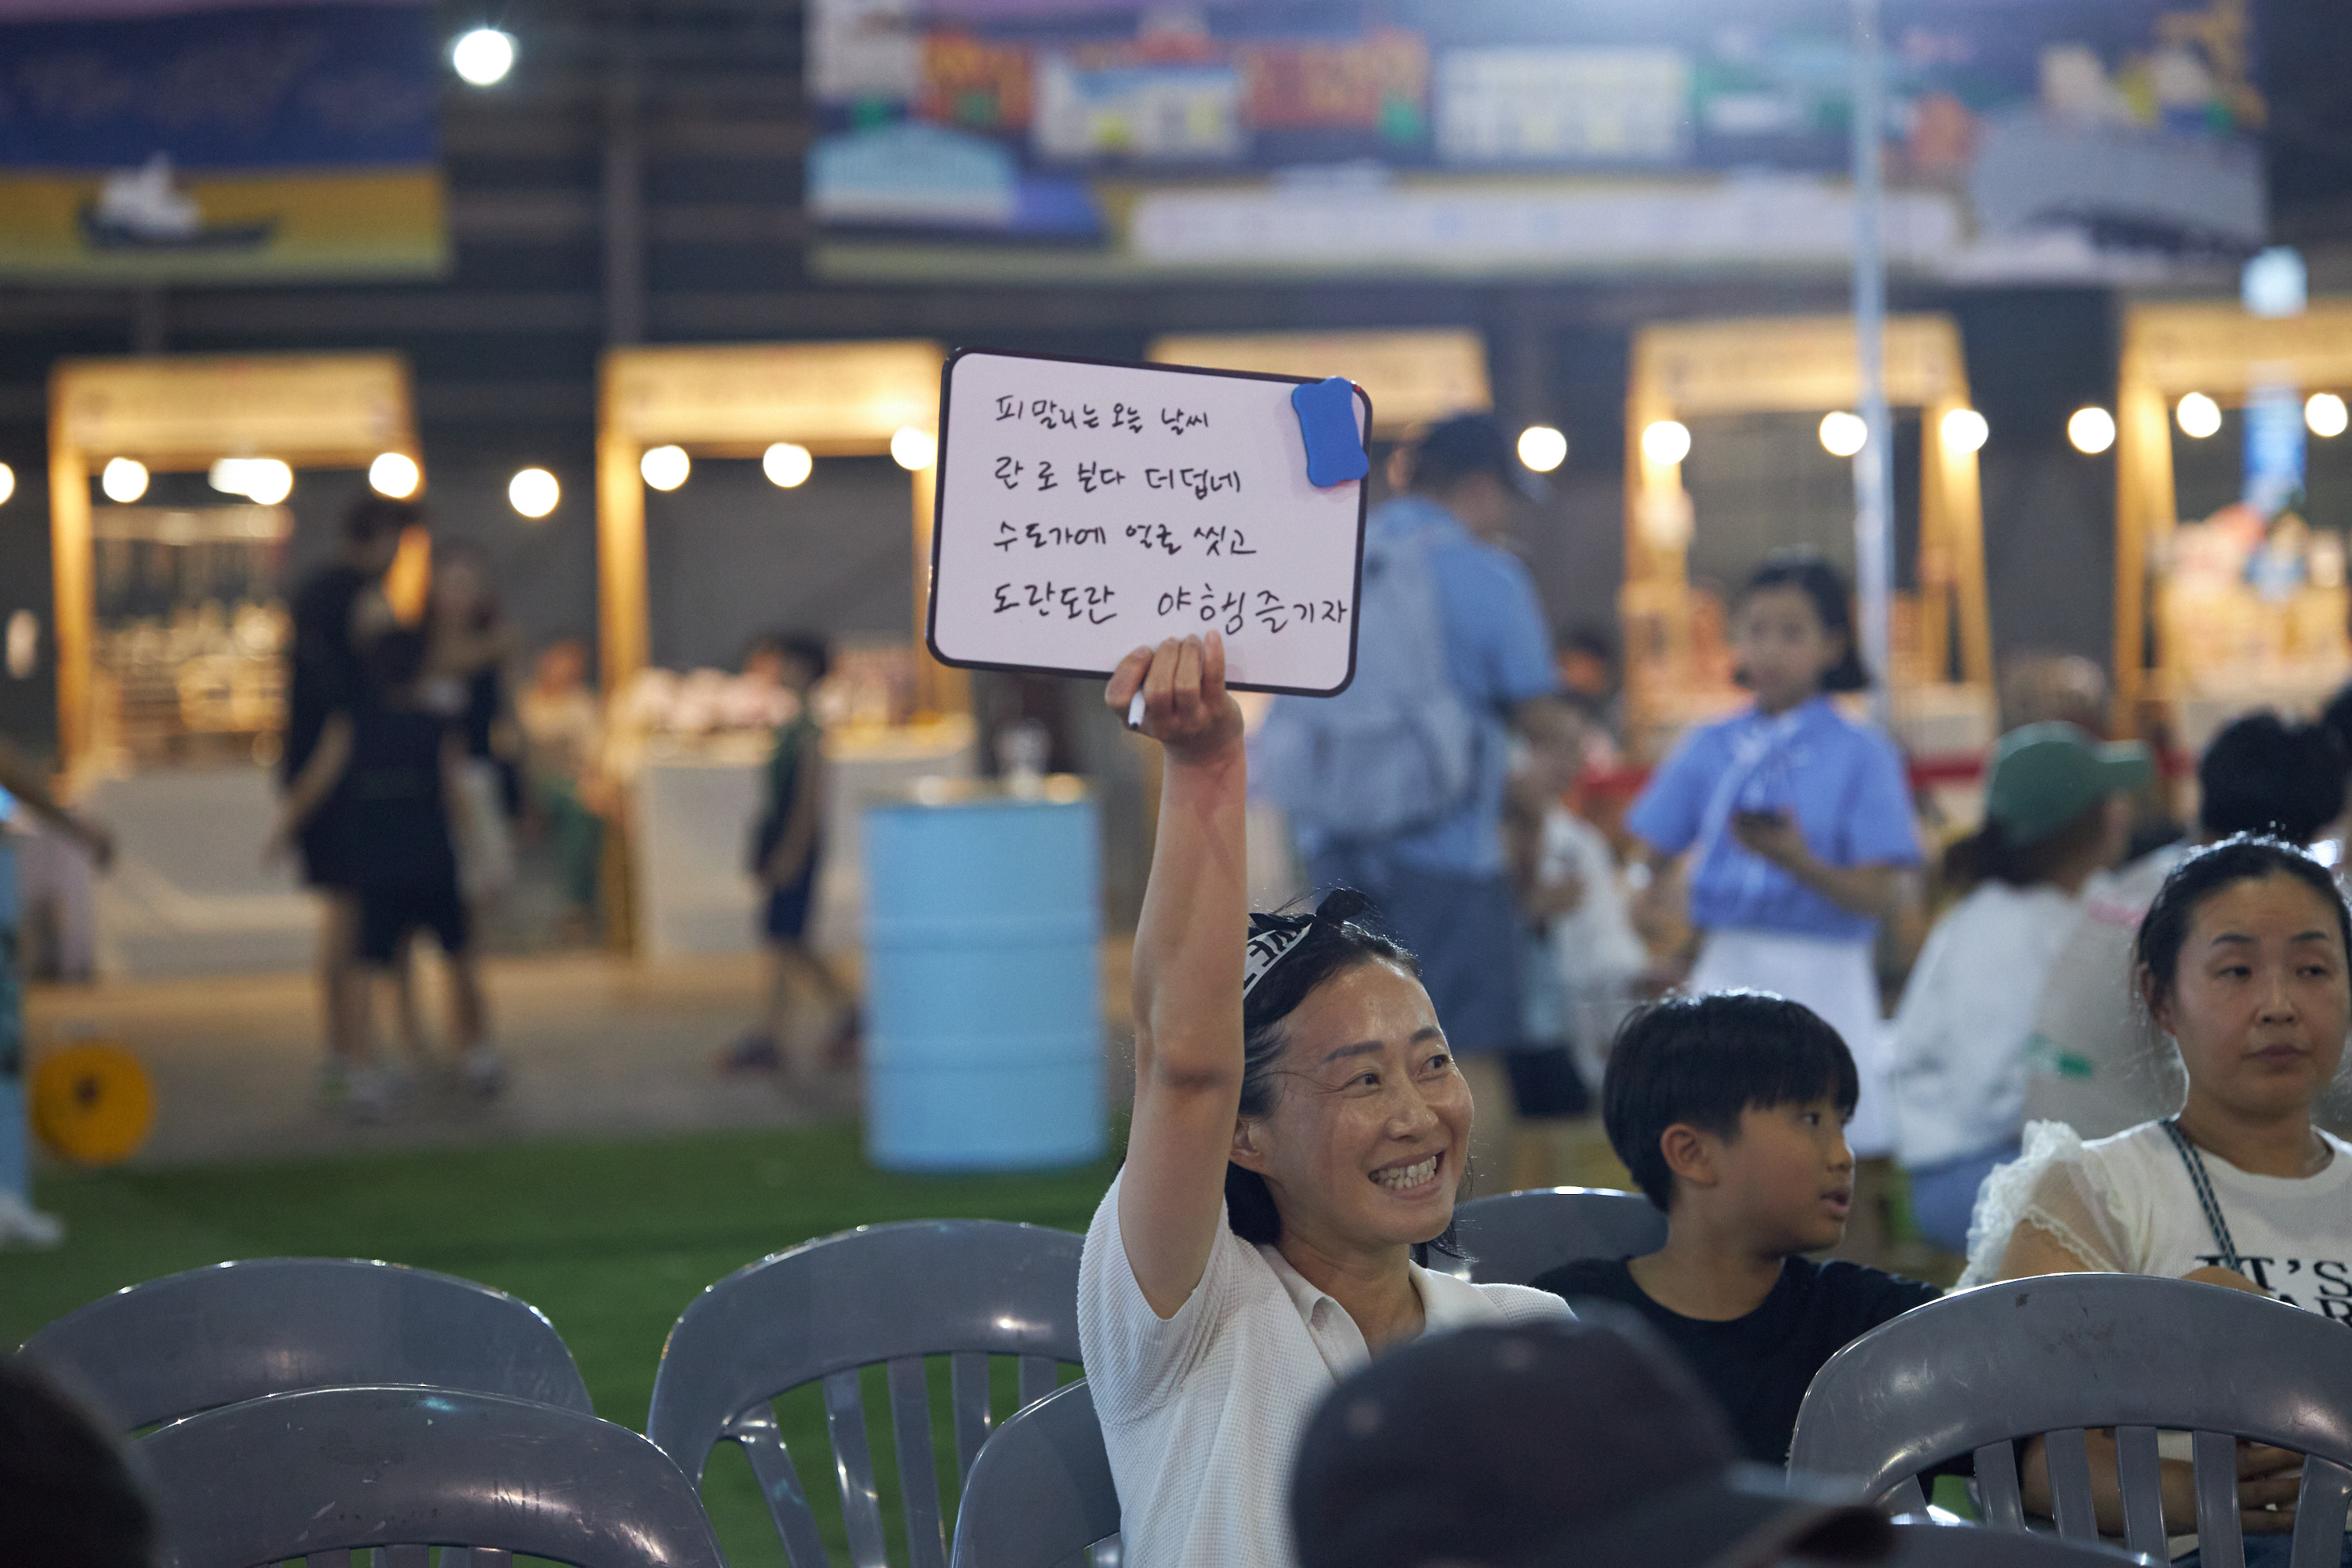 피말리는 오늘 날씨
란로 본다 더덥네
수도가에 얼굴 씻고
도란도란 야행즐기자
IT'S